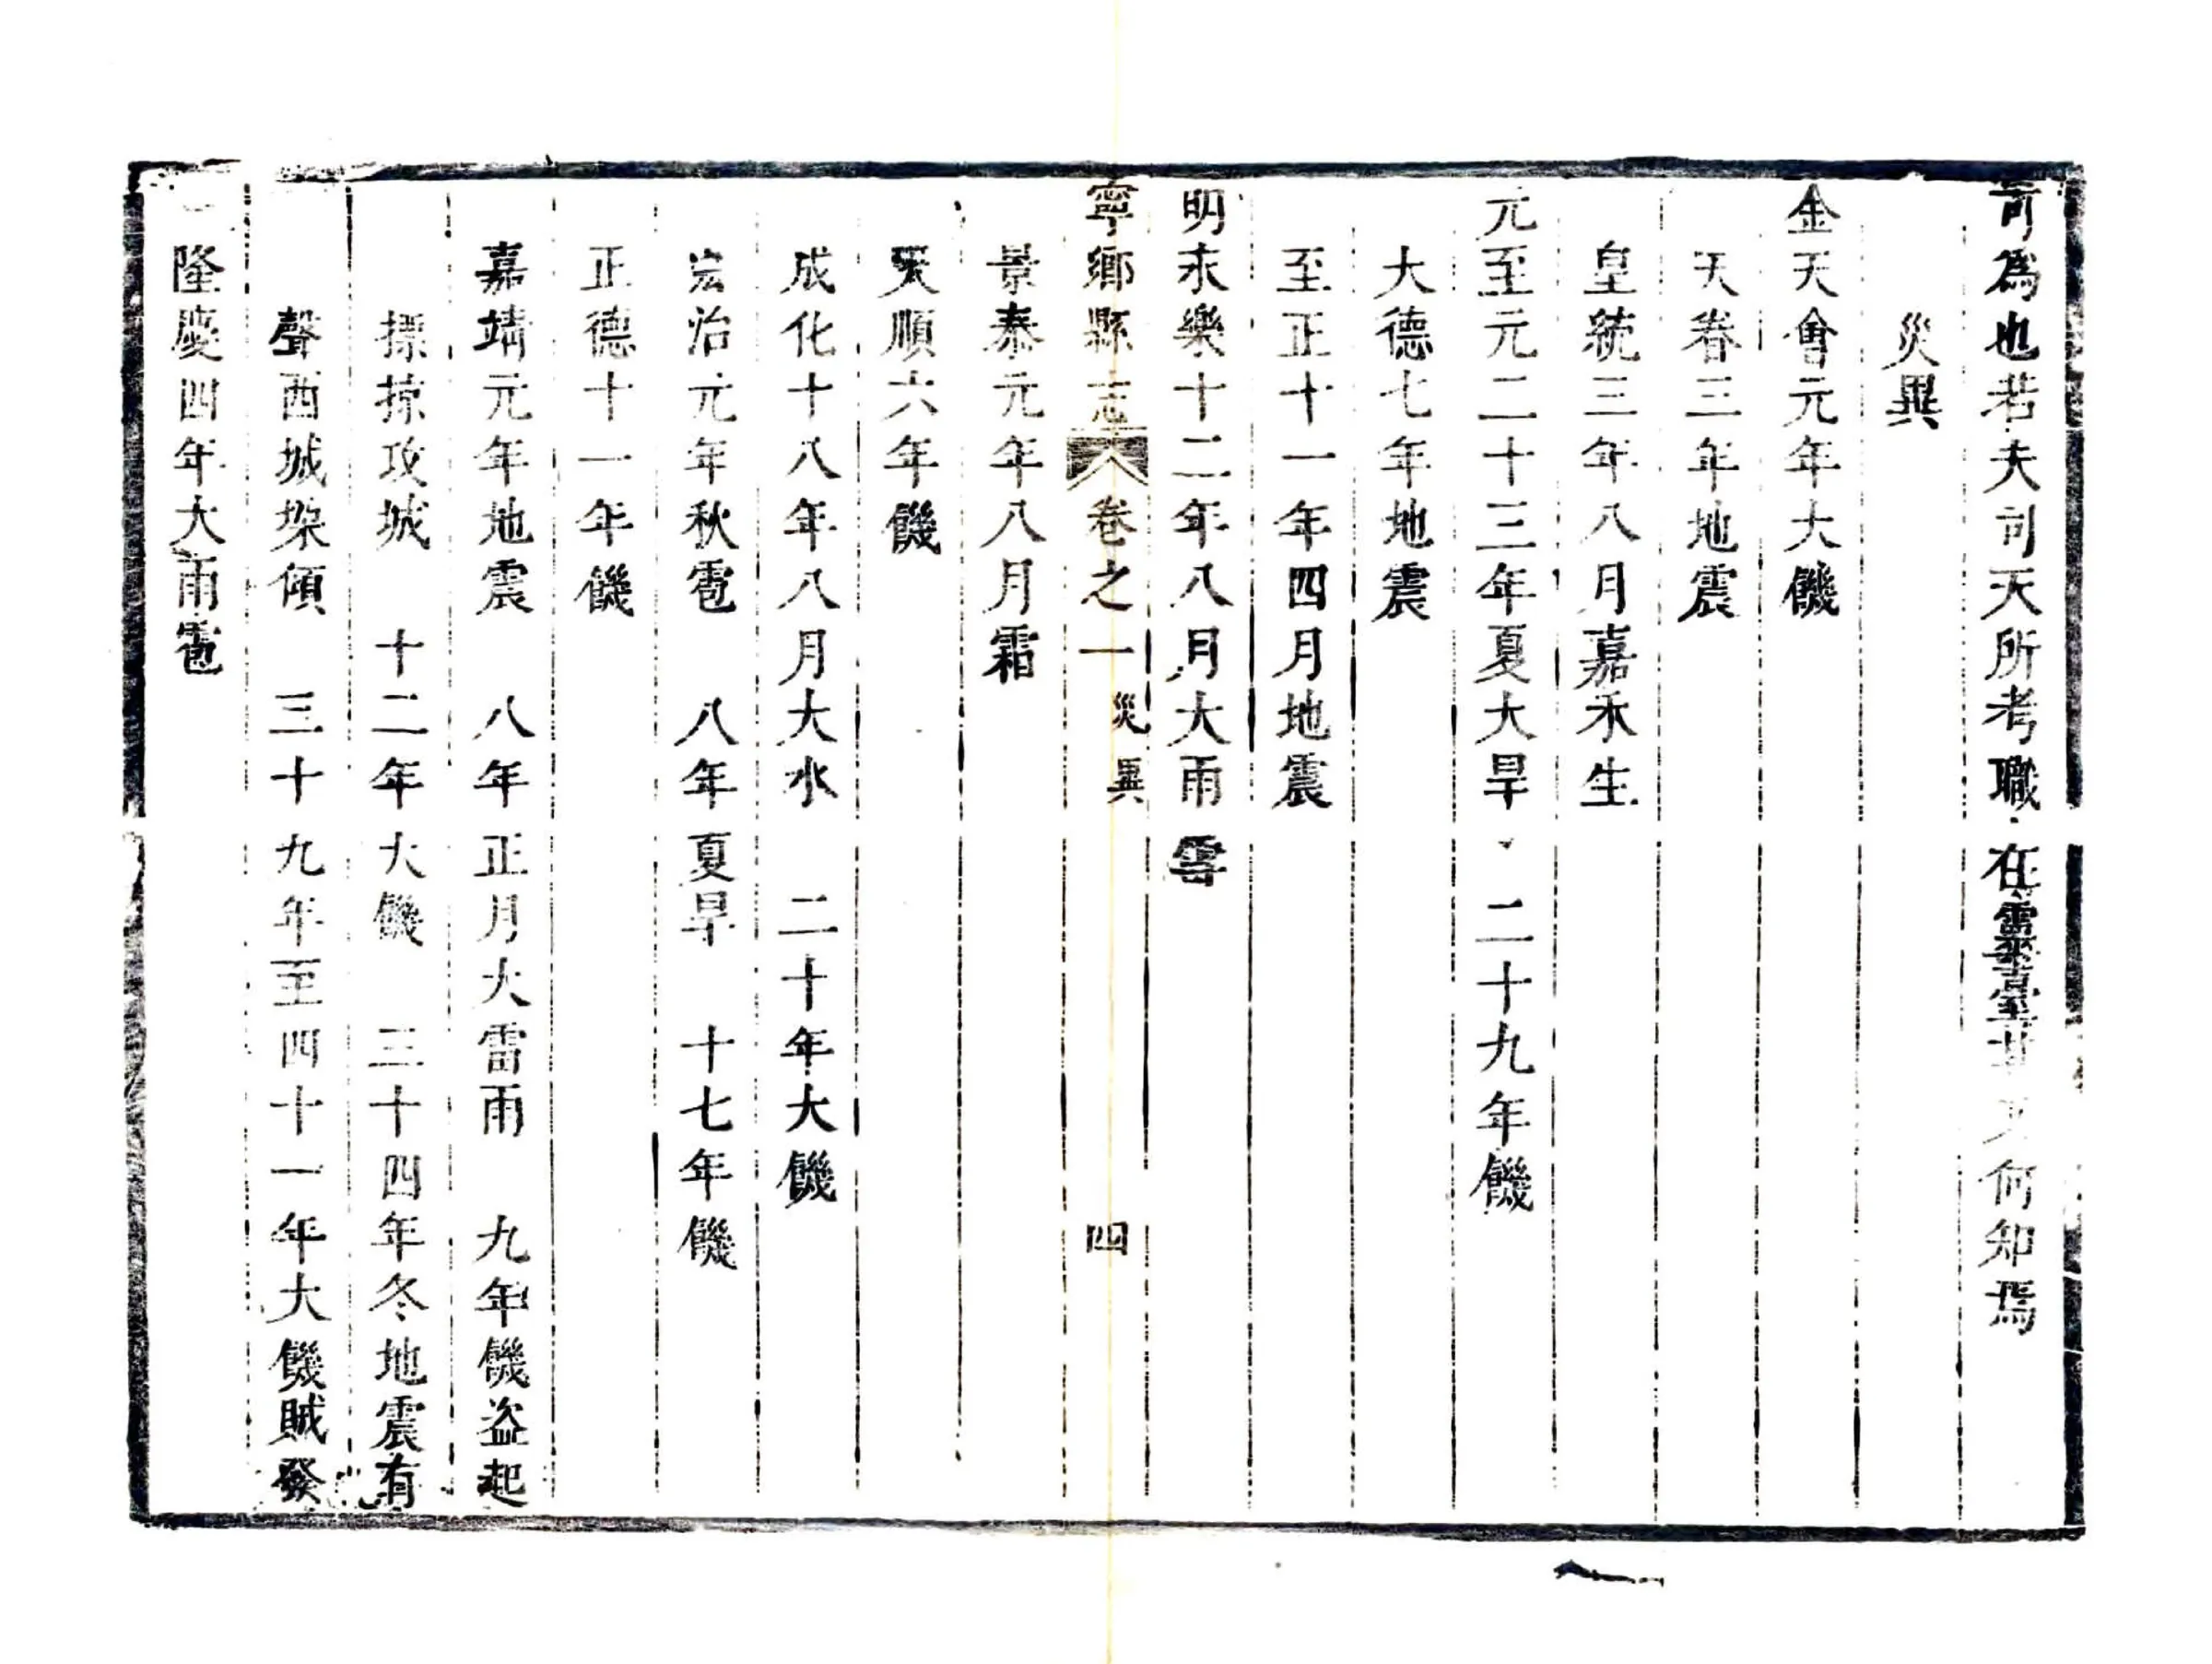 可為也若夫司天所考職在靈臺非又何知焉
災異
金天會元年大饑
天眷三年地震
皇統三年八月嘉禾生
元至元二十三年夏大旱 二十九年饑
大德七年地震
至正十一年四月地震
明永樂十二年八月大雨雹
寧鄉縣志 卷之一 災異 四
景泰元年八月霜
天順六年饑
成化十八年八月大水 二十年大饑
宏治元年秋雹 八年夏旱 十七年饑
正德十一年饑
嘉靖元年地震 八年正月大雷雨 九年饑盜起
摽掠攻城 十二年大饑 三十四年冬地震有
聲西城垜傾 三十九年至四十一年大饑賊發
隆慶四年大雨雹